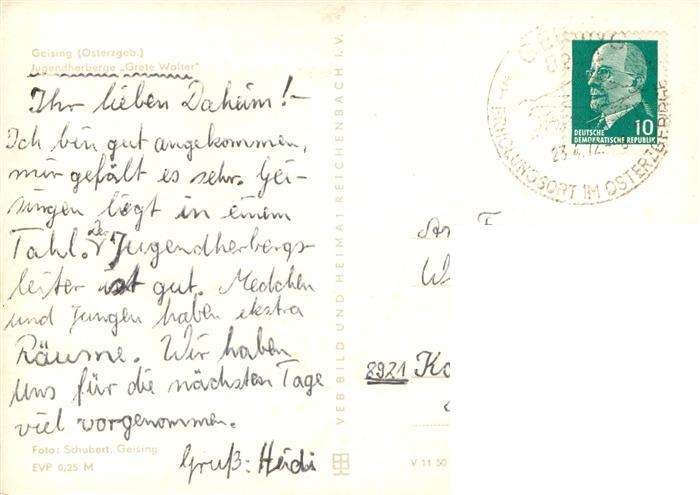 Geising (Osterzgeb.)
Jugendherberge „Grete Walter"
Ihr lieben Daheim!-
Ich bin gut angekommen,
mir gefält es sehr. Gei-
singen liegt in einem
Tahl. Der Jugendherbergs-
leiter ist gut. Medchen
und Jungen haben ekstra
Räume. Wir haben
uns für die nächsten Tage
viel vorgenommen.
Gruß: Heidi
Foto: Schubert, Geising
EVP 0,25 M
VEB BILD UND HEIMAT REICHENBACH I. V.
V 11 50
10
DEUTSCHE
DEMOKRATISCHE REPUBLIK
ERHOLUNGSORT IM OSTERZGEBIRGE
An
8921 Ko